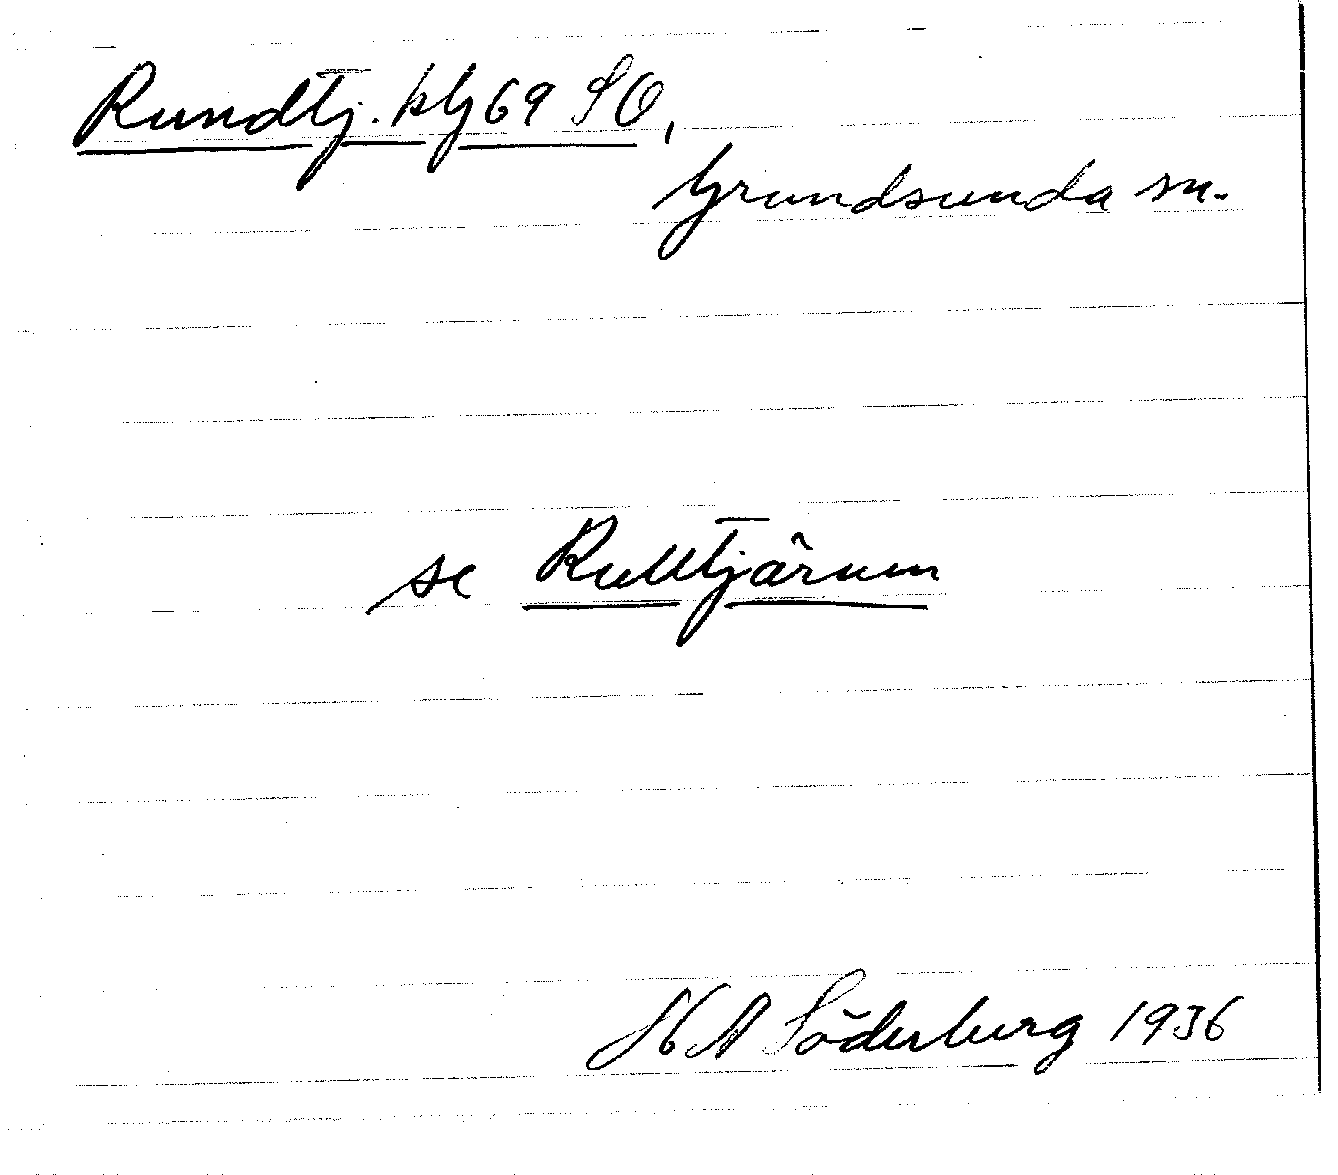 Rundtj. klj 69 SO,
Grundsunda sn.
se Rulltjärnen
H A Söderberg 1936